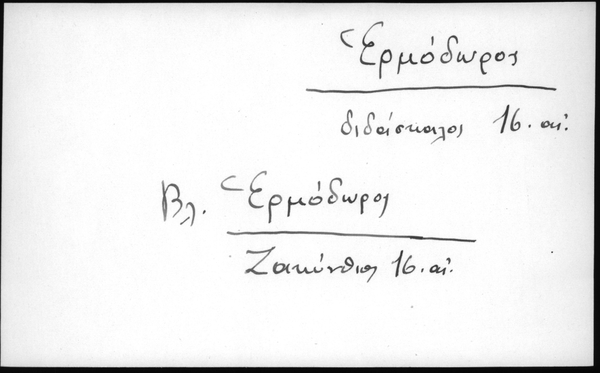 Ἑρμόδωρος
διδάσκαλος 16. αἰ.
Βλ. Ἑρμόδωρος
Ζακύνθιος 16. αἰ.